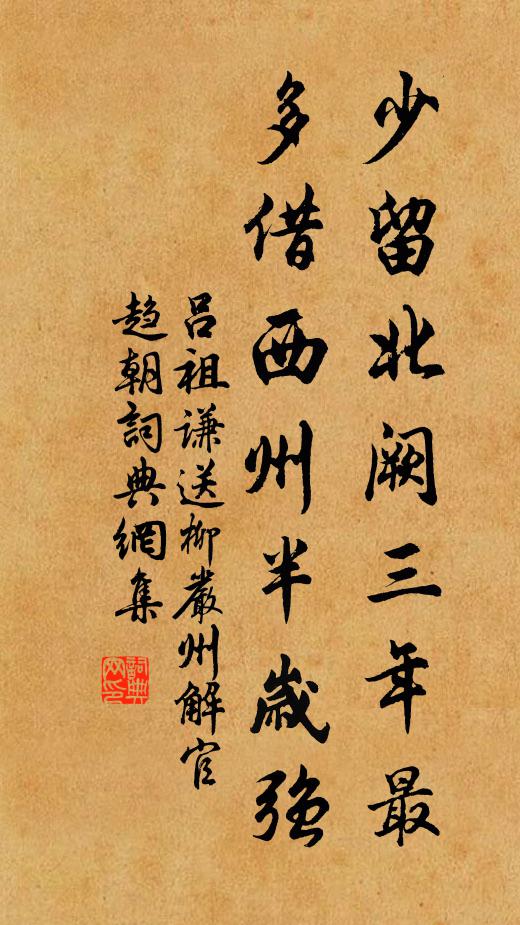 少留北阙三年最
多借西州半歲強
吕祖谦送柳嚴州解官
趋朝詞典網集
詞典网印